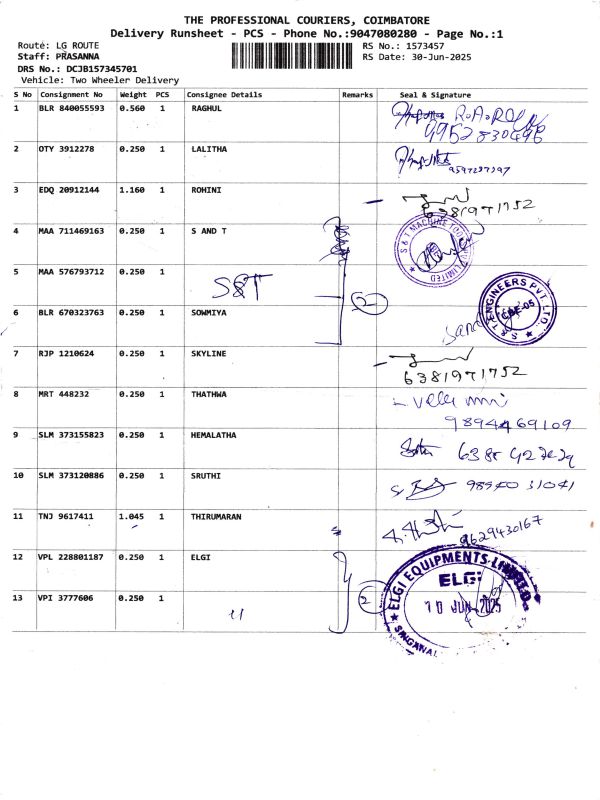 THE PROFESSIONAL COURIERS, COIMBATORE
Delivery Runsheet - PCS - Phone No.:9047080280 - Page No.:1
Route: LG ROUTE RS No.: 1573457
Staff: PRASANNA RS Date: 30-Jun-2025
DRS No.: DCJB157345701
Vehicle: Two Wheeler Delivery
S No Consignment No Weight PCS Consignee Details Remarks Seal & Signature
1 BLR 840055593 0.560 1 RAGHUL
2 OTY 3912278 0.250 1 LALITHA
3 EDQ 20912144 1.160 1 ROHINI 6381971752
4 MAA 711469163 0.250 1 S AND T
S & T MACHINERY PRIVATE LIMITED
5 MAA 576793712 0.250 1 S&T
2
S & T ENGINEERS PVT. LTD.
CBE-05
6 BLR 670323763 0.250 1 SOWMIYA
7 RJP 1210624 0.250 1 SKYLINE 6381971752
8 MRT 448232 0.250 1 THATHWA
9894469109
9 SLM 373155823 0.250 1 HEMALATHA
10 SLM 373120886 0.250 1 SRUTHI
11 TNJ 9617411 1.045 1 THIRUMARAN 9629430167
12 VPL 228801187 0.250 1 ELGI
ELGI EQUIPMENTS LIMITED
ELGi
10 JUN 2025
SINGANAL
13 VPI 3777606 0.250 1 "
2